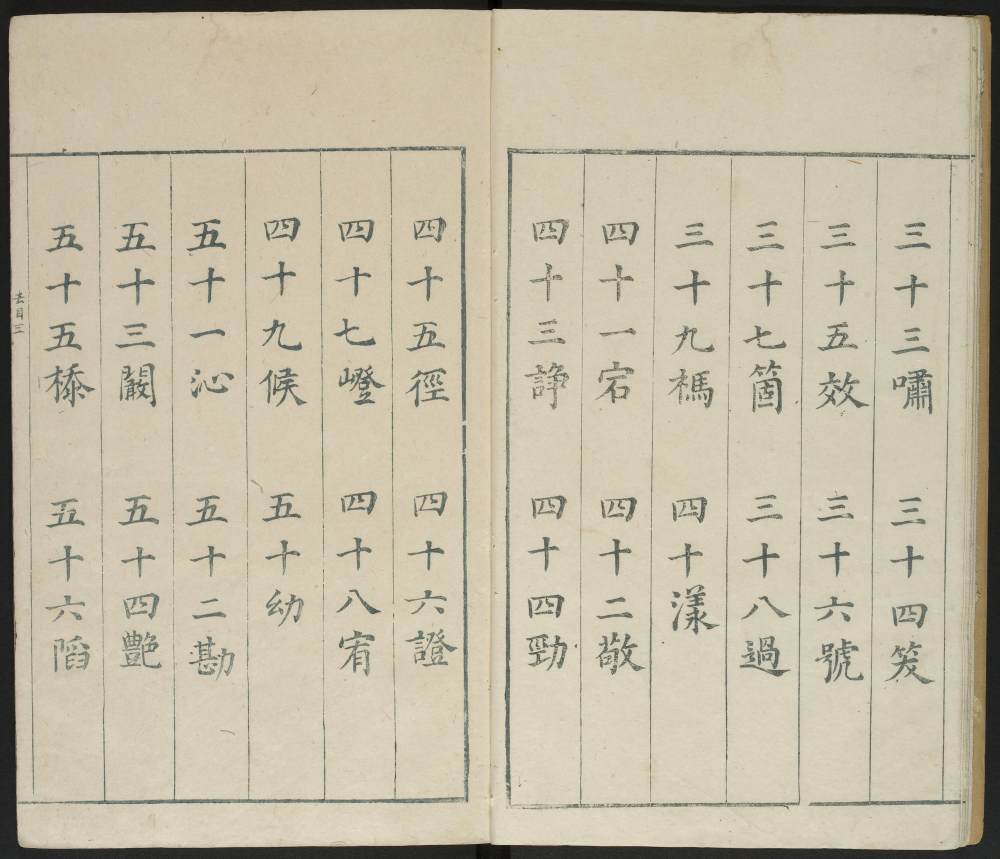 三十三嘯 三十四笑
三十五效 三十六號
三十七箇 三十八過
三十九禡 四十漾
四十一宕 四十二敬
四十三諍 四十四勁
四十五徑 四十六證
四十七嶝 四十八宥
四十九候 五十幼
五十一沁 五十二勘
五十三闞 五十四艷
五十五㮇 五十六陷
去目三